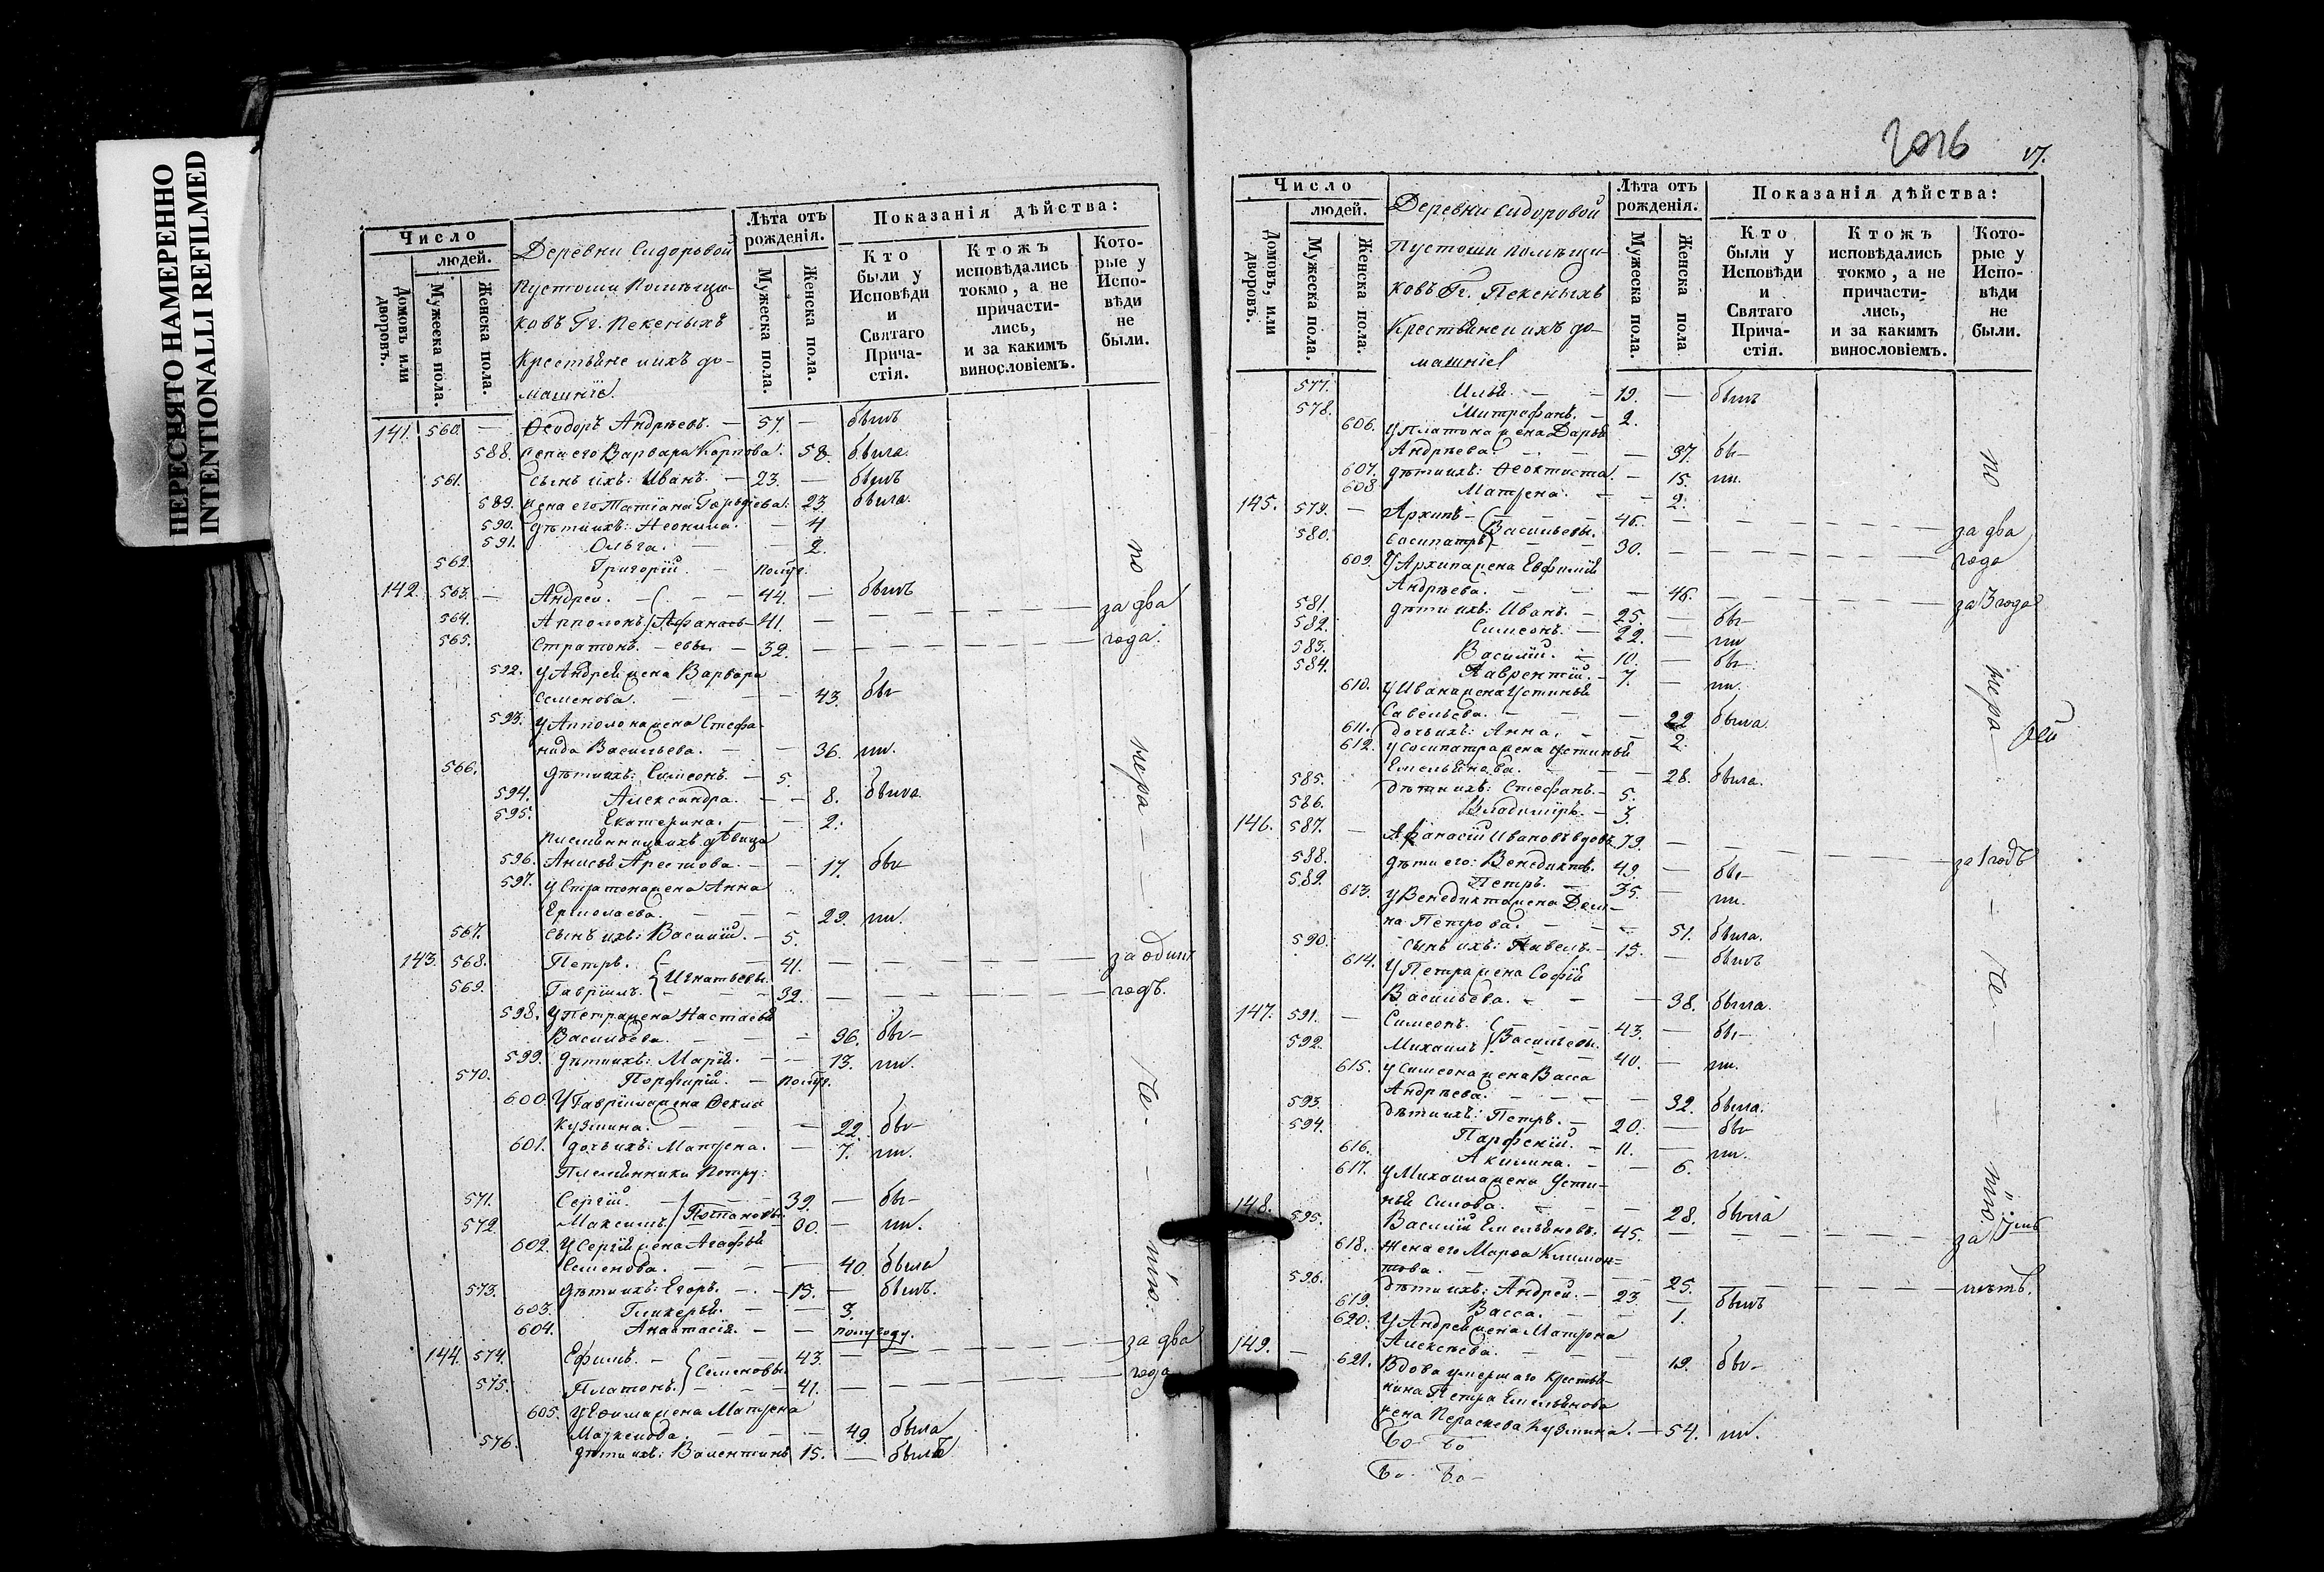 ПЕРЕСНЯТО НАМЕРЕННО
INTENTIONALLI REFILMED
Число
людей.
Домовъ или дворовъ.
Мужеска пола.
Женска пола.
Деревни Сидоровой
Пустоши Помѣщи-
ковъ Гг. Пекеныхъ
Крестьяне и ихъ до-
машніе.
Лѣта отъ рожденія.
Мужеска пола.
Женска пола.
Показанія дѣйства:
Кто были у Исповѣди и Святаго Причастія.
Ктожъ исповѣдались токмо, а не причастились, и за какимъ винословіемъ.
Которые у Исповѣди не были.
141. 560. — Ѳеодоръ Андрѣевъ. — 57. — былъ
588. Жена его Варвара Карпова. 58. была.
561. Сынъ ихъ: Иванъ. — 23. — былъ
589. Жена его Татіана Гордѣева: 23. была.
590. Дѣти ихъ: Неонила. — 4
591. Ольга. — — 2.
562. Григорій. — полуг.
142. 563. — Андрей. — — 44. — былъ
564. Апполонъ. Афанась- 41. — — за два
565. Стратонъ. — евы — 32. — — года.
592. У Андрея жена Варвара
Семенова. — — 43. бы-
593. У Апполона жена Стефа-
нида Васильева. — — 36. ли.
566. Дѣти ихъ: Симеонъ. — 5.
594. Александра. — — 8. была
595. Екатерина. — — 2.
Племянница ихъ дѣвица
596. Анисья Арестова. — — 17. бы-
597. У Стратона жена Анна
Ермолаева. — — 29. ли.
567. Сынъ ихъ: Василій. — 5.
143. 568. Петръ. — 41. — — за одинъ
569. Гавріилъ. Игнатьевы. — 32. — — годъ.
598. У Петра жена Настасья
Васильева. — — 36. бы-
599. Дѣти ихъ: Марія. — — 13. ли.
570. Порфирій. — полуг.
600. У Гавріила жена Ѳекла
Кузмина. — — 22. бы-
601. Дочь ихъ: Матрена. — 7. ли.
Племянники Петру:
571. Сергій. — 39. — бы-
572. Максимъ. Потаповы. 30. — ли.
602. У Сергія жена Агафья
Семенова. — — 40. была
573. Дѣти ихъ: Егоръ. — 15. — былъ.
603. Гликерья. — — 3.
604. Анастасія. — — полугоду.
144. 574. Ефимъ. — 43. — — за два
575. Платонъ. Семеновы. — 41. — — года
605. У Ефима жена Матрена
— — 49. была
576. Дѣти ихъ: Валентинъ 15. — былъ
по
мера
-
ніко.
2016
17.
Число
людей.
Домовъ, или дворовъ.
Мужеска пола.
Женска пола.
Деревни Сидоровой
Пустоши помѣщи-
ковъ Гг. Пекеныхъ
Крестьяне и ихъ до-
машніе
Лѣта отъ рожденія.
Мужеска пола.
Женска пола
Показанія дѣйства:
Кто были у Исповѣди и Святаго Причастія.
Ктожъ исповѣдались токмо, а не причастились, и за какимъ винословіемъ.
Которые у Исповѣди не были.
577. Илья. — — 19. — былъ
578. Митрофанъ. — 2.
606. У Платона жена Дарья
Андрѣева. — — 37. бы-
607. Дѣти ихъ: Ѳеоктиста. — 15. ли.
608. Матрена. — — 2.
145. 579. — Архипъ — 46. — — за два
580. Сосипатръ Васильевы. 30. — — года
609. У Архипа жена Евфимія
Андрѣева. — — 46. — — за 3 года
581. Дѣти ихъ: Иванъ. — 25. — бы-
582. Симеонъ. — 22. — ли
583. Василій. — 10. — бы-
584. Лаврентій. — 7. — ли.
610. У Ивана жена Устинья
Савельева. — — 22 была.
611. Дочь ихъ: Анна. — — 2.
612. У Сосипатра жена Устинья
Емельянова. — — 28. была.
585. Дѣти ихъ: Стефанъ. — 5.
586. Владиміръ. — 3.
146. 587. — Афанасій Ивановъ вдовъ 79. — — за 1 годъ
588. Дѣти его: Венедиктъ. 49. — бы-
589. Петръ. — 35. — ли.
613. У Венедикта жена Дом-
на Петрова. — — 51. была.
590. Сынъ ихъ: Павелъ. — 15. — былъ
614. У Петра жена Софія
Васильева. — — 38. была.
147. 591. — Симеонъ. — 43. — бы-
592. Михаилъ Васильевы. 40. — ли.
615. У Симеона жена Васса
Андрѣева. — — 32. была.
593. Дѣти ихъ: Петръ. — 20. — бы-
594. Парфеній. — 11. — ли.
616. Акилина. — — 6.
617. У Михаила жена Усти-
нья Силова. — — 28. была
148. 595. Василій Емельяновъ. 45. — — за 7мь
618. Жена его Марѳа Климон-
това. — — 25. — — лѣтъ.
596. Дѣти ихъ: Андрей. — 23. — былъ
619. Васса. — — 1.
620. У Андрея жена Матрона
Алексѣева. — — 19. бы-
149. — 621. Вдова умершаго крестья-
нина Петра Емельянова
жена Параскева Кузмина. — 54. ли.
по
мера
-
ніко.